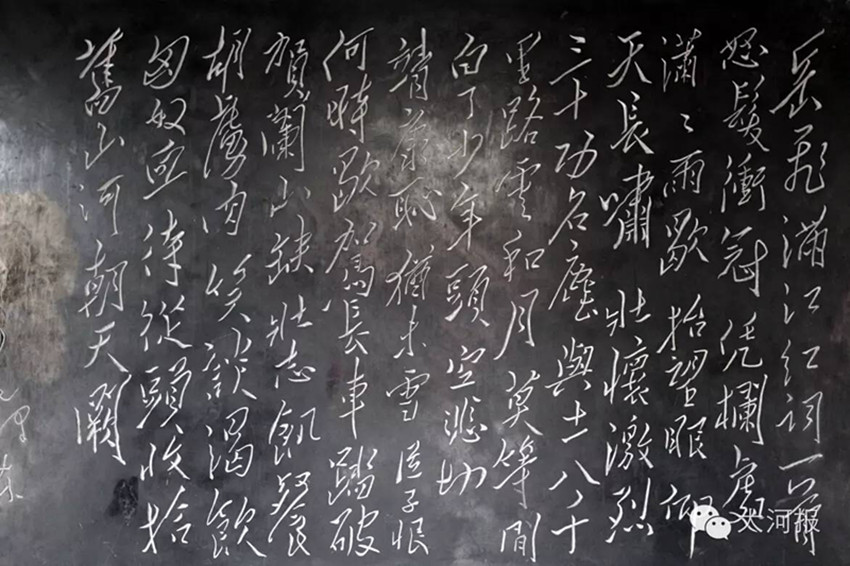 岳飛滿江红詞一首
怒髮衝冠凭欄處
瀟〻雨歇抬望眼仰
天長嘯壯懷激烈
三十功名塵與土八千
里路雲和月莫等閒
白了少年頭空悲切
靖康恥猶未雪臣子恨
何時歇駕長車踏破
賀蘭山缺壯志飢餐
胡虜肉笑談渴飲
匈奴血待從頭收拾
舊山河朝天闕
大河报